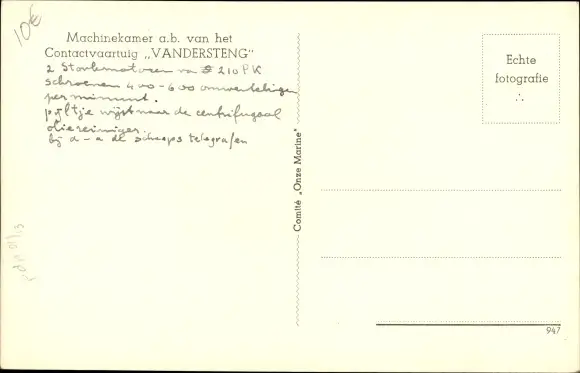 10€
Machinekamer a.b. van het
Contactvaartuig „VANDERSTENG"
2 Storkmotoren van 210 PK
schroeven 400-600 omwentelingen
per minuut.
pijltje wijst naar de centrifugaal
oliereiniger.
bij a - a de scheepstelegrafen
Comité „Onze Marine"
Echte
fotografie
947